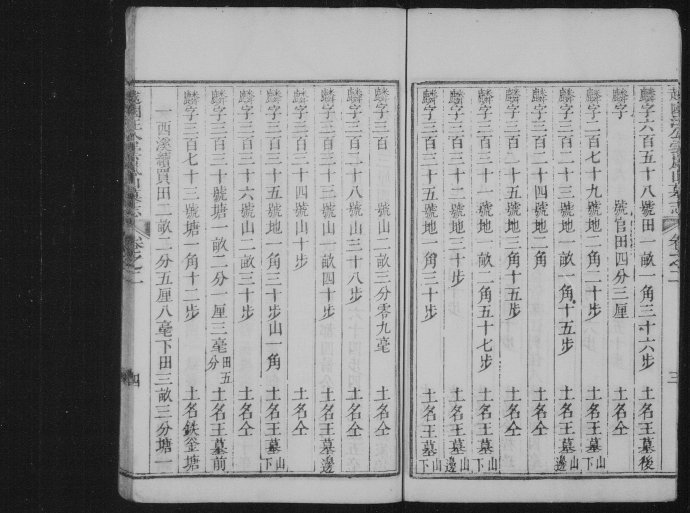 麟字六百五十八號田一畝一角三十六步 土名王墓後
麟字 號官田四分三厘 土名仝
麟字二百七十九號地二角二十步 土名仝
麟字三百二十 號地一畝一角十五步 土名王墓山邊
麟字三百二十四號地一角 土名仝
麟字三百二十五號地三角十五步 土名仝
麟字三百三十一號地一畝二角五十七步 土名王墓山下
麟字三百三十二號地三十步 土名王墓山邊
麟字三百三十五號地一角三十步 土名王墓山下
三
麟字三百 號山二畝三分零九毫 土名仝
麟字三百 號山三十八步 土名仝
麟字三百三十三號山一畝四十步 土名王墓邊
麟字三百三十 號山十步 土名仝
麟字三百三十五號地一角三十步山一角 土名王墓山下
麟字三百三十六號山二畝三十步 土名仝
麟字三百三十 號塘一畝二分一厘三毫田五分 土名王墓前
麟字三百七十三號塘一角十二步 土名鉄釜塘
一西溪續買田二畝二分五厘八毫下田三畝三分塘一
卷之二
四